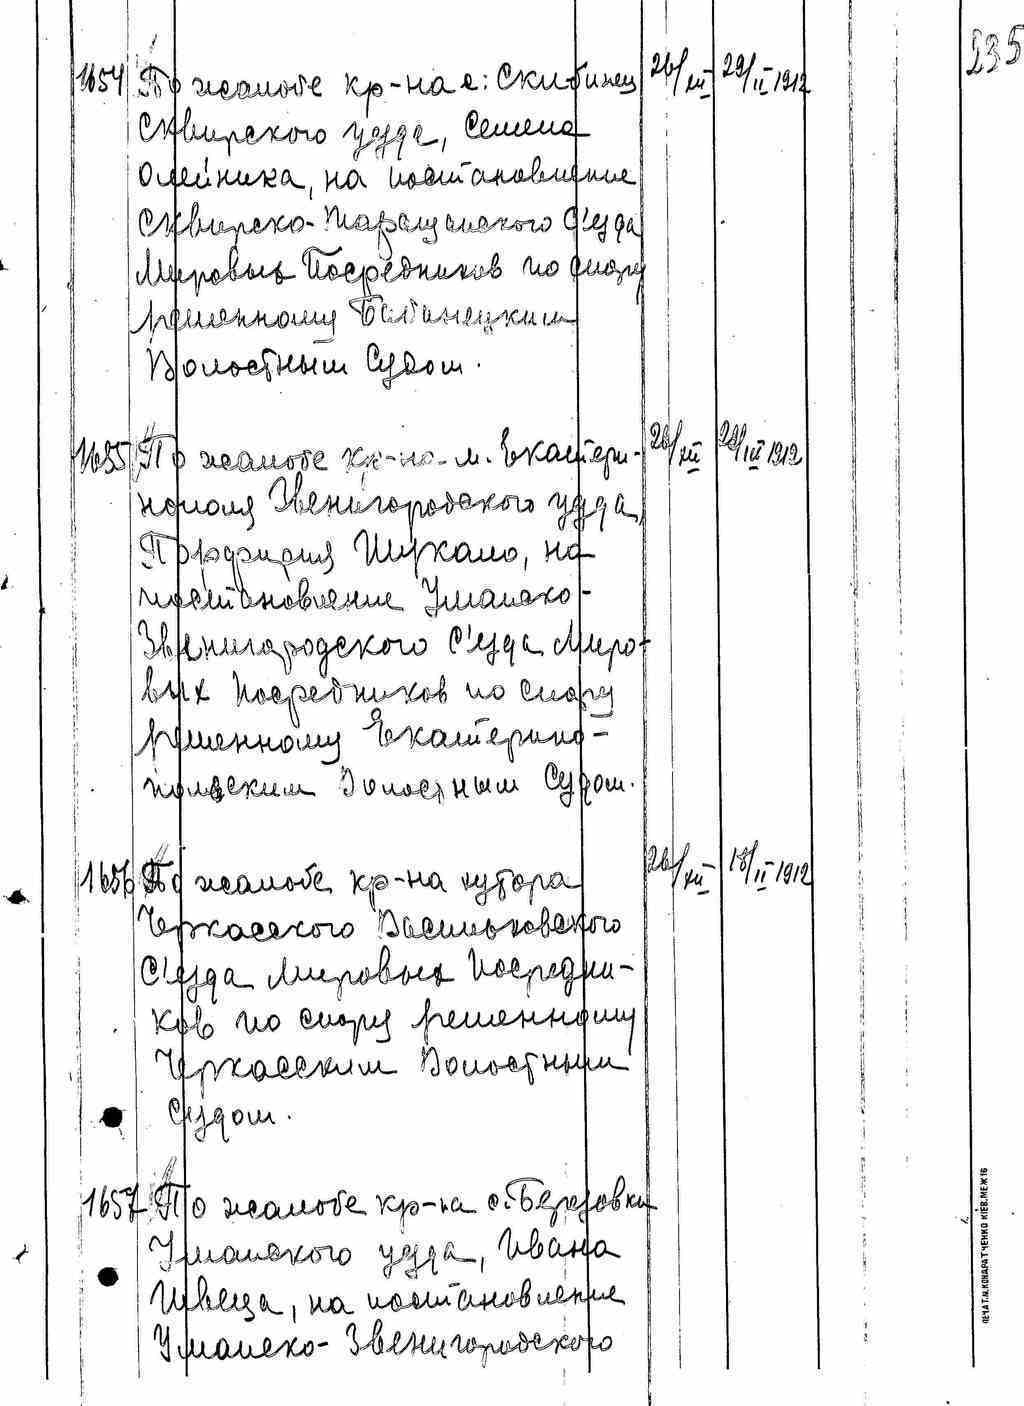 235
1654 По жалобе кр-на с. Скибинец 26/XII 29/II 1912
Сквирского уезда, Семена
Олейника, на постановление
Сквирско-Таращанского С'езда
Мировых Посредников по спору
решенному
Волостным Судом.
1655 По жалобе кр-на м. Екатери- 26/XII 29/III 1912
нополя Звенигородского уезда,
Порфирия Шукало, на
постановление Уманско-
Звенигородского С'езда Миро-
вых Посредников по спору
решенному Екатерино-
польским Волостным Судом.
1656 По жалобе кр-на хутора 26/XII 18/II 1912
Черкасского Васильковского
С'езда Мировых Посредни-
ков по спору решенному
Черкасским Волостным
Судом.
1657 По жалобе кр-на с. Березовки
Уманского уезда, Ивана
Швеца, на постановление
Уманско-Звенигородского
ПЕЧАТ.М.КОНДРАТЧЕНКО КІЕВ.МЕЖ16